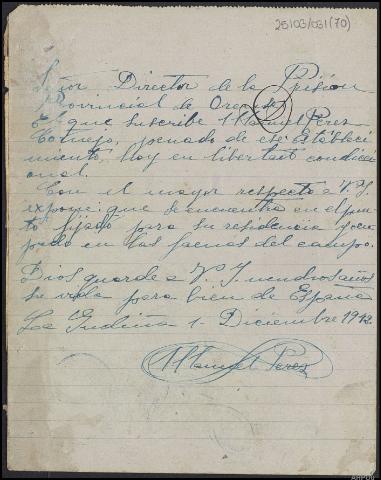 25103/031(70)
Señor Director de la Prisión
Provincial de Orense
El que suscribe Manuel Perez
Cornejo, penado de ese Estableci
miento, hoy en libertad condici
onal.
Con el mayor respecto a V.S.
expone: que se encuentra en el pun
to fijado para su residencia y ocu
pado en las faenas del campo.
Dios guarde a V. S. muchos años
su vida para bien de España
La Gudiña 1- Diciembre 1942
Manuel Perez
AHPOU